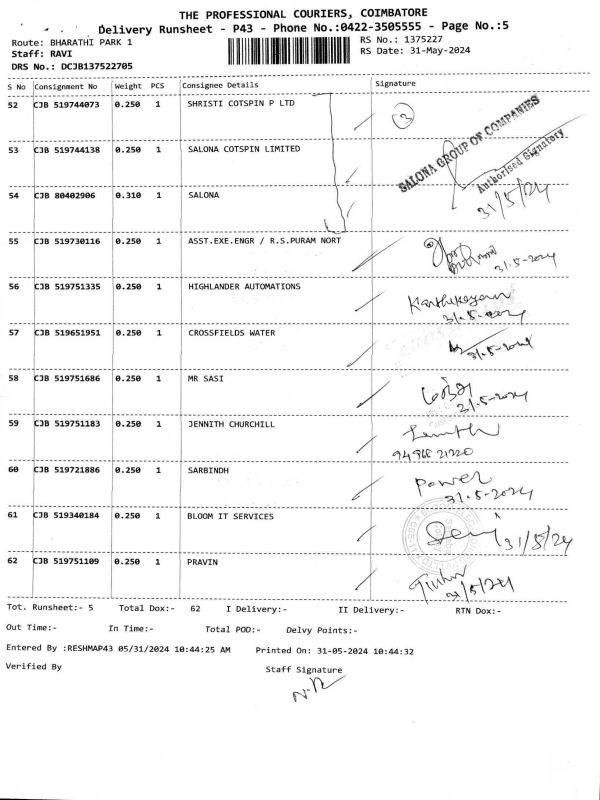 THE PROFESSIONAL COURIERS, COIMBATORE
Delivery Runsheet - P43 - Phone No.:0422-3505555 - Page No.:5
Route: BHARATHI PARK 1 RS No.: 1375227
Staff: RAVI RS Date: 31-May-2024
DRS No.: DCJB137522705
S No Consignment No Weight PCS Consignee Details Signature
52 CJB 519744073 0.250 1 SHRISTI COTSPIN P LTD 3
53 CJB 519744138 0.250 1 SALONA COTSPIN LIMITED SALONA GROUP OF COMPANIES
Authorised Signatory
54 CJB 80402906 0.310 1 SALONA 31/5/24
55 CJB 519730116 0.250 1 ASST.EXE.ENGR / R.S.PURAM NORT
31.5-2024
56 CJB 519751335 0.250 1 HIGHLANDER AUTOMATIONS Karthikeyan
31.5-2024
57 CJB 519651951 0.250 1 CROSSFIELDS WATER 31.5-2024
58 CJB 519751686 0.250 1 MR SASI
31.5-2024
59 CJB 519751183 0.250 1 JENNITH CHURCHILL
60 CJB 519721886 0.250 1 SARBINDH Power
31.5-2024
61 CJB 519340184 0.250 1 BLOOM IT SERVICES 31/5/24
62 CJB 519751109 0.250 1 PRAVIN
31/5/24
Tot. Runsheet:- 5 Total Dox:- 62 I Delivery:- II Delivery:- RTN Dox:-
Out Time:- In Time:- Total POD:- Delvy Points:-
Entered By :RESHMAP43 05/31/2024 10:44:25 AM Printed On: 31-05-2024 10:44:32
Verified By Staff Signature